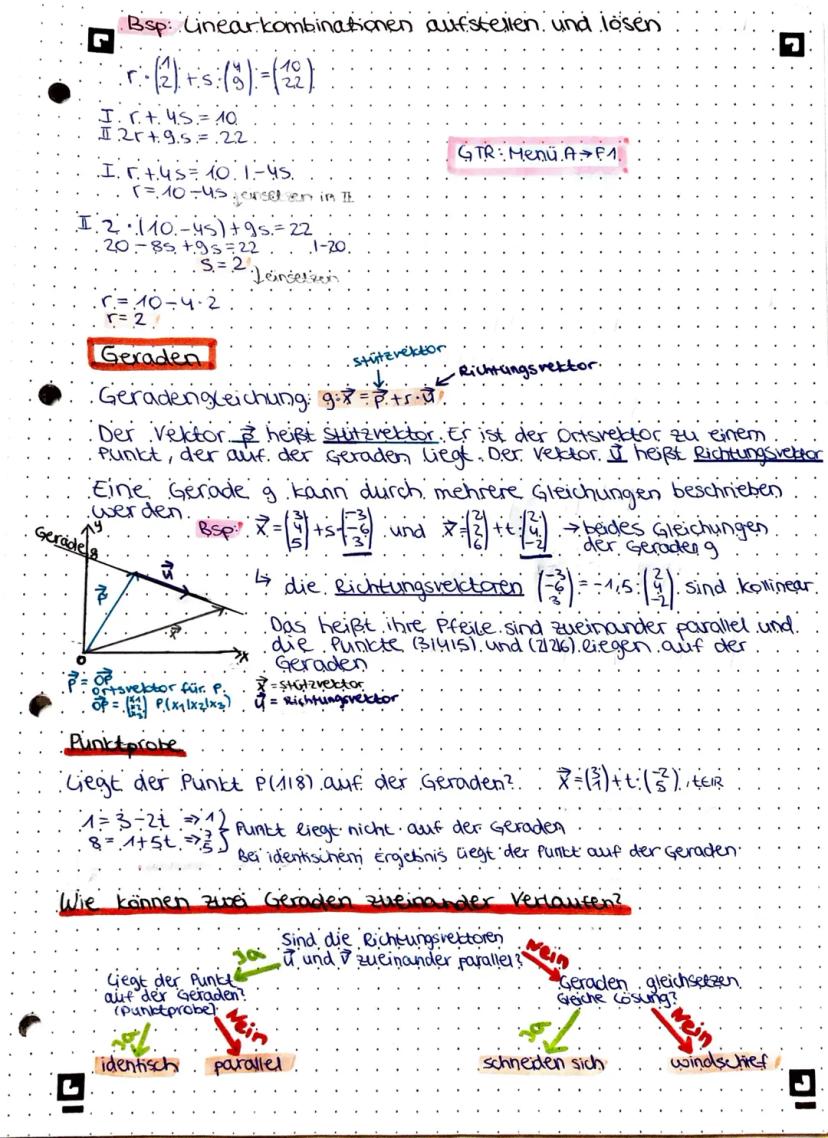 Bsp: Linearkombinationen aufstellen und lösen
r·(1 2) + s·(4 9) = (10 22)
I r + 4s = 10
II 2r + 9s = 22
GTR: Menü A → F1
I r + 4s = 10 |-4s
r = 10 - 4s ↓einsetzen in II
II 2·(10 - 4s) + 9s = 22
20 - 8s + 9s = 22 |-20
s = 2 ↓einsetzen
r = 10 - 4·2
r = 2
Geraden
Stützvektor
Richtungsvektor
Geradengleichung: g: x⃗ = p⃗ + r·u⃗
Der Vektor p⃗ heißt Stützvektor. Er ist der Ortsvektor zu einem
Punkt, der auf der Geraden liegt. Der Vektor u⃗ heißt Richtungsvektor
Eine Gerade g kann durch mehrere Gleichungen beschrieben
werden.
Bsp: x⃗ = (3 4 5) + s·(-3 -6 3) und x⃗ = (2 2 6) + t·(2 4 -2) → beides Gleichungen
der Geraden g
↳ die Richtungsvektoren (-3 -6 3) = -1,5·(2 4 -2) sind kollinear.
Das heißt ihre Pfeile sind zueinander parallel und
die Punkte (3|4|5) und (2|2|6) liegen auf der
Geraden
Gerade g
y
u⃗
p⃗
x⃗
0
x
p⃗ = OP⃗
Ortsvektor für P.
OP⃗ = (x1 x2 x3) P(x1|x2|x3)
x⃗ = Stützvektor
u⃗ = Richtungsvektor
Punktprobe
Liegt der Punkt P(1|8) auf der Geraden? x⃗ = (3 1) + t·(-2 5), t∈IR
1 = 3 - 2t ⇒ 1
8 = 1 + 5t ⇒ 7/5
} Punkt liegt nicht auf der Geraden
Bei identischem Ergebnis liegt der Punkt auf der Geraden
Wie können zwei Geraden zueinander Verlaufen?
Sind die Richtungsvektoren
u⃗ und v⃗ zueinander parallel?
Ja
Nein
Liegt der Punkt
auf der Geraden?
(Punktprobe)
Geraden gleichsetzen
Gleiche Lösung?
Ja
Nein
Ja
Nein
identisch
parallel
schneiden sich
windschief